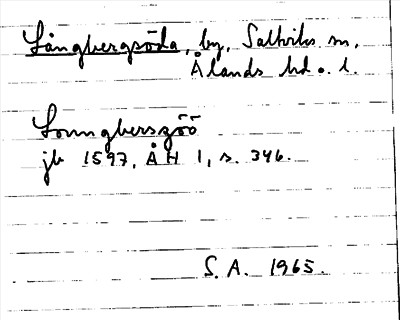 Långbergsöda, by, Saltviks sn,
Ålands hd o. l.
Loungberszöö
jb 1597, ÅH 1, s. 346.
S. A. 1965.